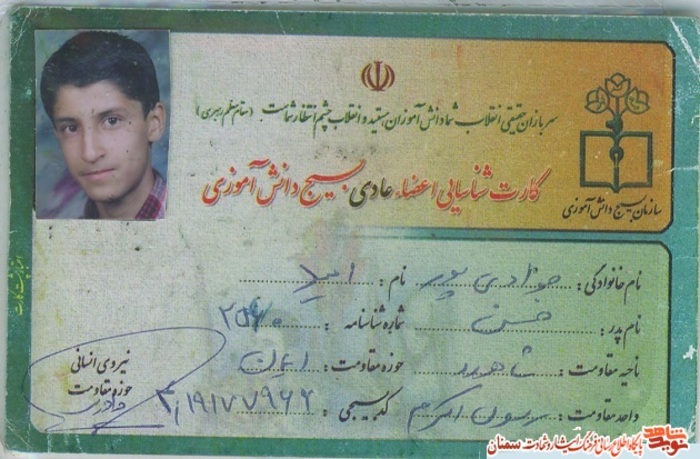 سربازان حقیقی انقلاب شما دانش آموزان هستید و انقلاب چشم انتظار شماست (مقام معظم رهبری)
کارت شناسایی اعضاء عادی بسیج دانش آموزی
سازمان بسیج دانش آموزی
نام خانوادگی: جوادی پور نام: امید
نام پدر: حسن شماره شناسنامه:
ناحیه مقاومت: شاهرود حوزه مقاومت:
واحد مقاومت: رسول اکرم کد بسیجی:
نیروی انسانی
حوزه مقاومت
اعتبار پشت کارت
پایگاه اطلاع رسانی فرهنگ ایثار و شهادت سمنان
نوید شاهد